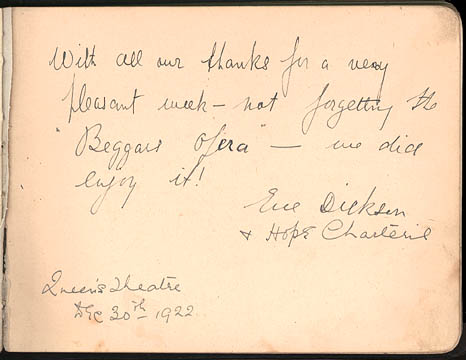 With all our thanks for a very
pleasant week - not forgetting the
"Beggars Opera" - we did
enjoy it!
Eve Dickson
& Hope Charteris
Queen's Theatre
Dec 30th 1922